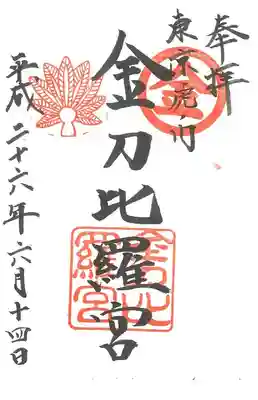 奉拝
東京虎ノ門
金
金刀比羅宮
金比羅宮
平成二十六年六月十四日